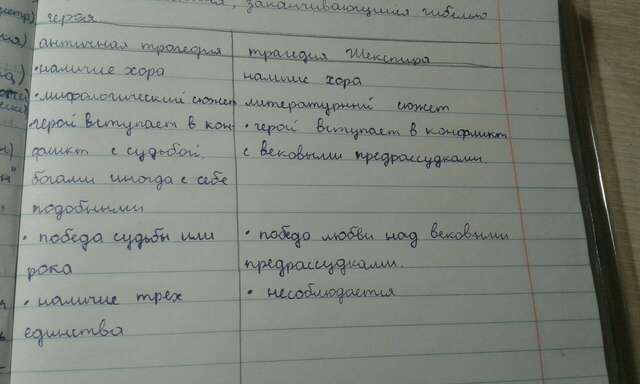 , заканчивающийся гибелью
героя
античная трагедия трагедия Шекспира
• наличие хора наличие хора
• мифологический сюжет литературный сюжет
герой вступает в кон- • герой вступает в конфликт
фликт с судьбой, с вековыми предрассудками.
богами иногда с себе
подобными
• победа судьбы или • победа любви над вековыми
рока предрассудками.
• наличие трех • несоблюдается
единства